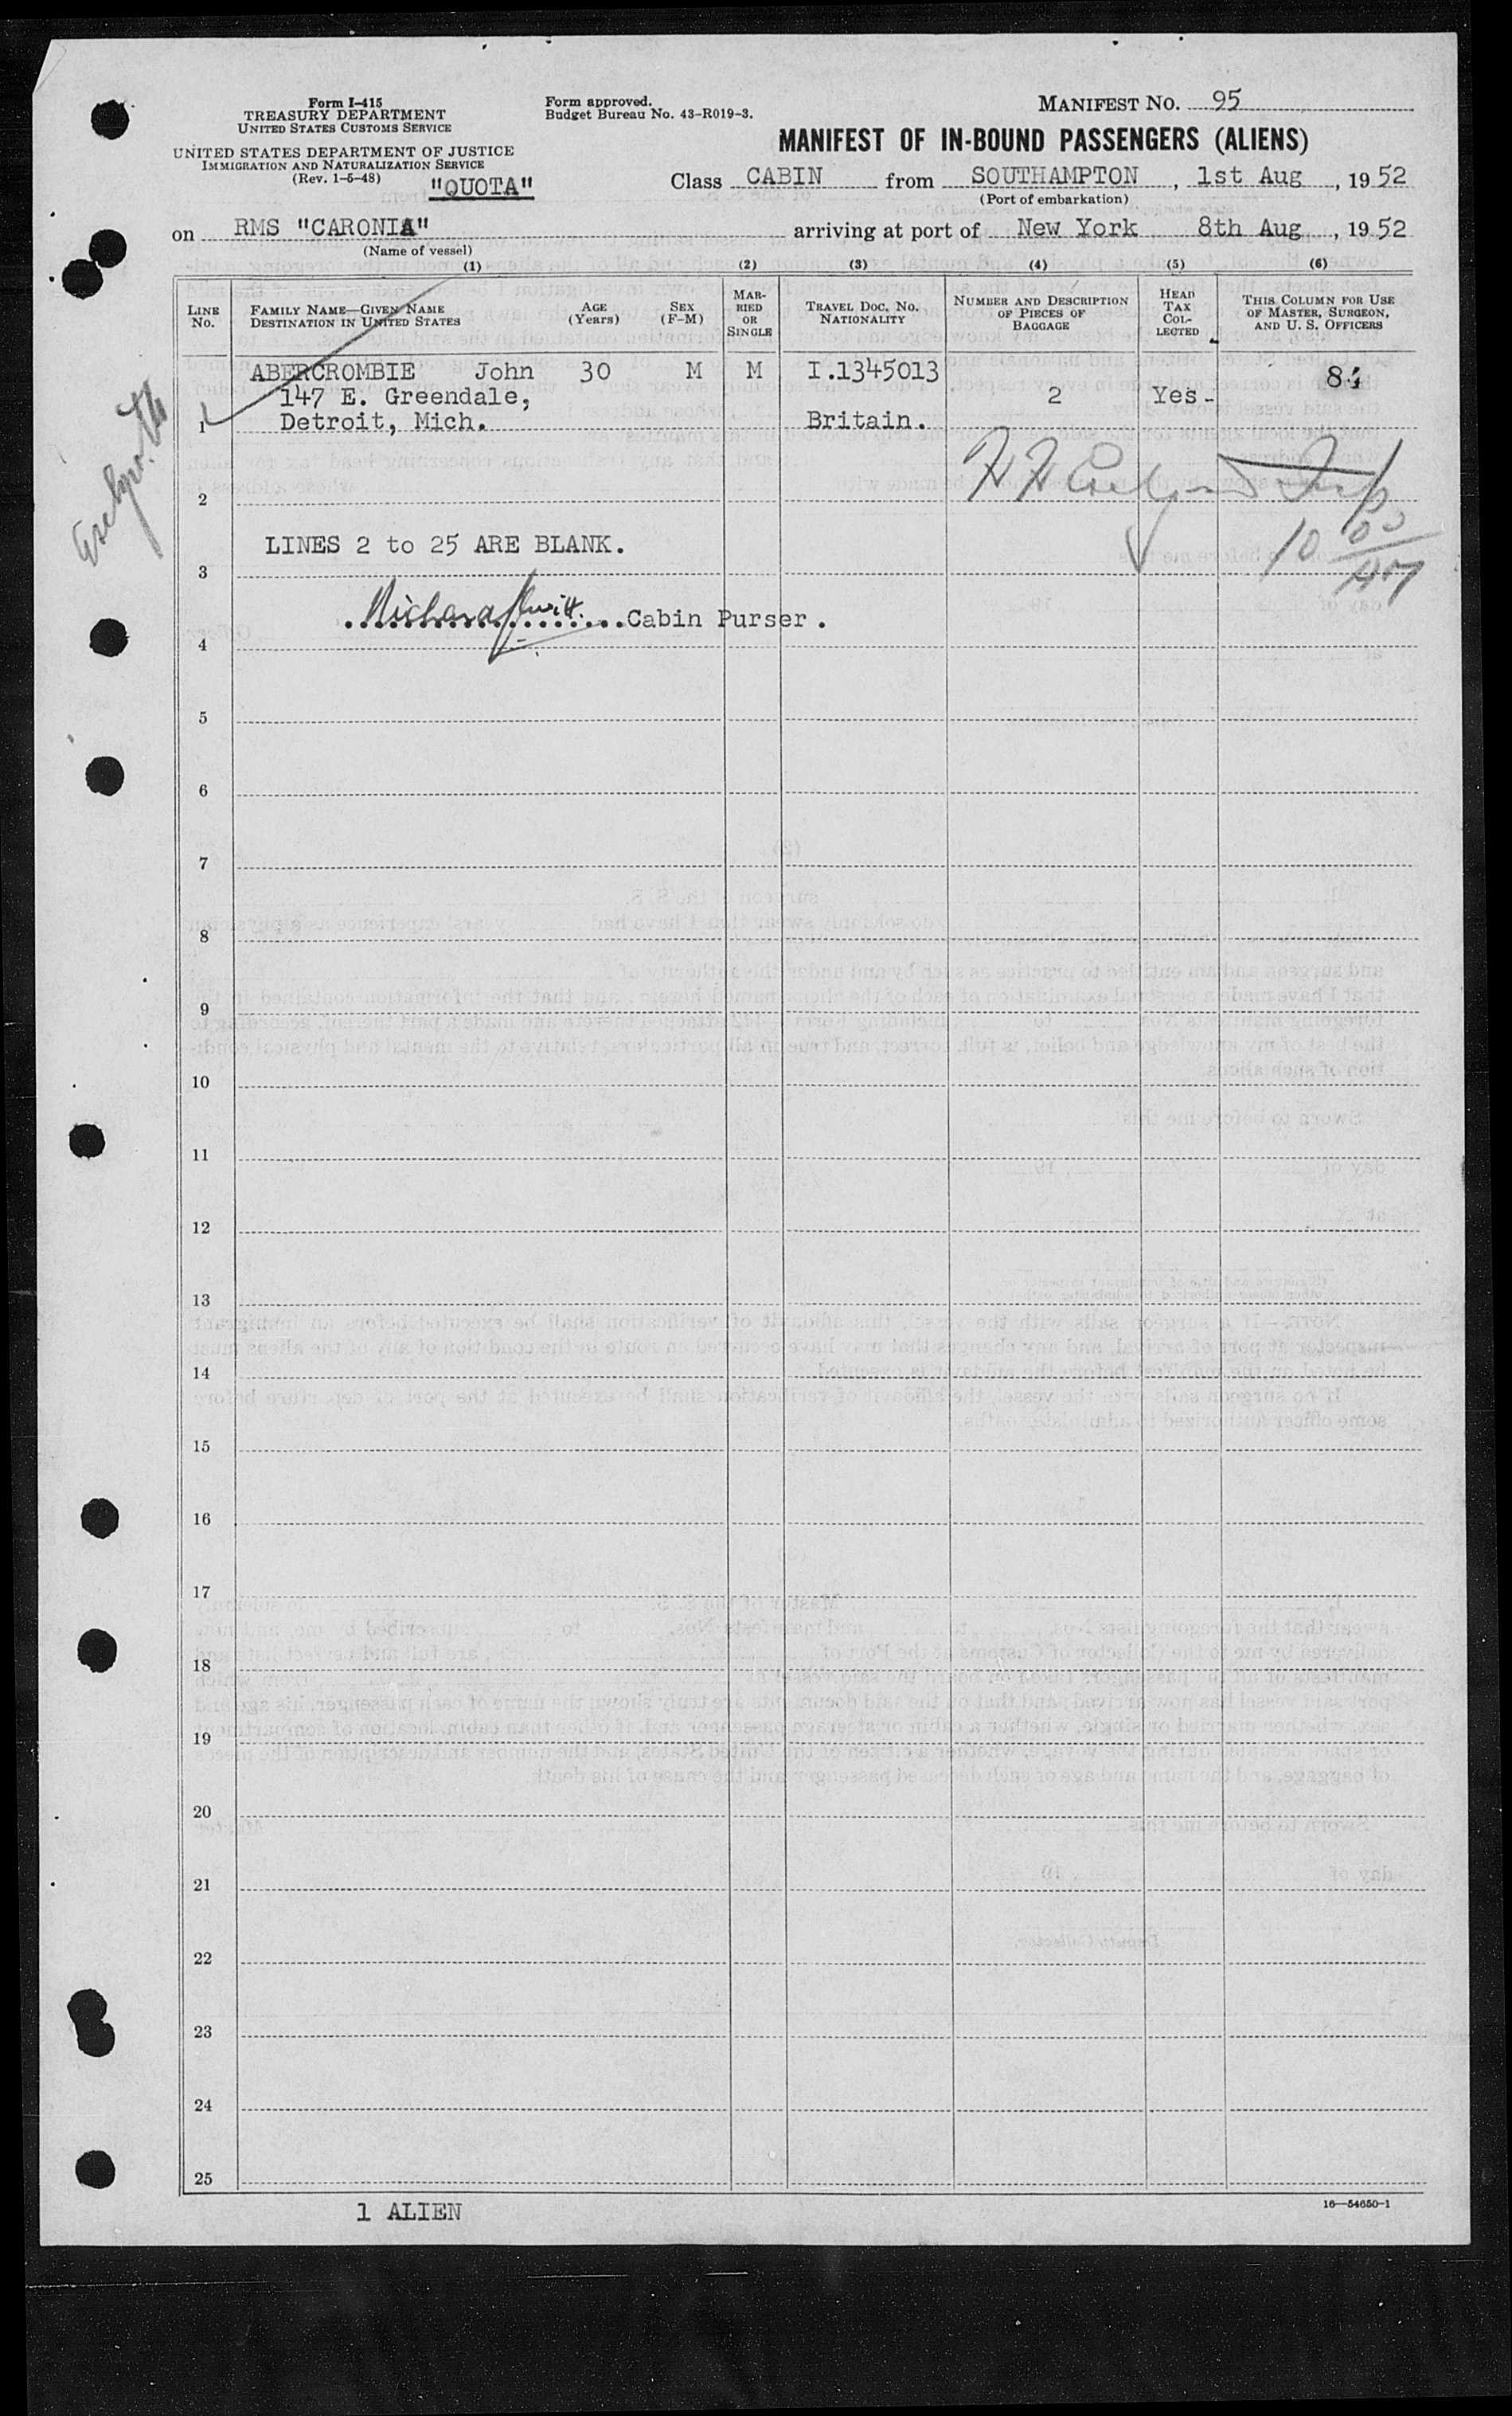 Form I-415
TREASURY DEPARTMENT
UNITED STATES CUSTOMS SERVICE
UNITED STATES DEPARTMENT OF JUSTICE
IMMIGRATION AND NATURALIZATION SERVICE
(Rev. 1-5-48)
"QUOTA"
Form approved.
Budget Bureau No. 43-R019-3.
MANIFEST NO. 95
MANIFEST OF IN-BOUND PASSENGERS (ALIENS)
Class CABIN from SOUTHAMPTON, 1st Aug, 1952
(Port of embarkation)
on RMS "CARONIA" arriving at port of New York 8th Aug, 1952
(Name of vessel)
(1) (2) (3) (4) (5) (6)
LINE NO.
FAMILY NAME—GIVEN NAME
DESTINATION IN UNITED STATES
AGE (Years)
SEX (F-M)
MARRIED OR SINGLE
TRAVEL DOC. NO.
NATIONALITY
NUMBER AND DESCRIPTION OF PIECES OF BAGGAGE
HEAD TAX COLLECTED
THIS COLUMN FOR USE OF MASTER, SURGEON, AND U. S. OFFICERS
ABERCROMBIE John 30 M M I.1345013
147 E. Greendale, 2 Yes-
1 Detroit, Mich. Britain.
2
LINES 2 to 25 ARE BLANK.
10 00 AM
3
Richard Cabin Purser.
4
5
6
7
8
9
10
11
12
13
14
15
16
17
18
19
20
21
22
23
24
25
1 ALIEN
16—54650-1